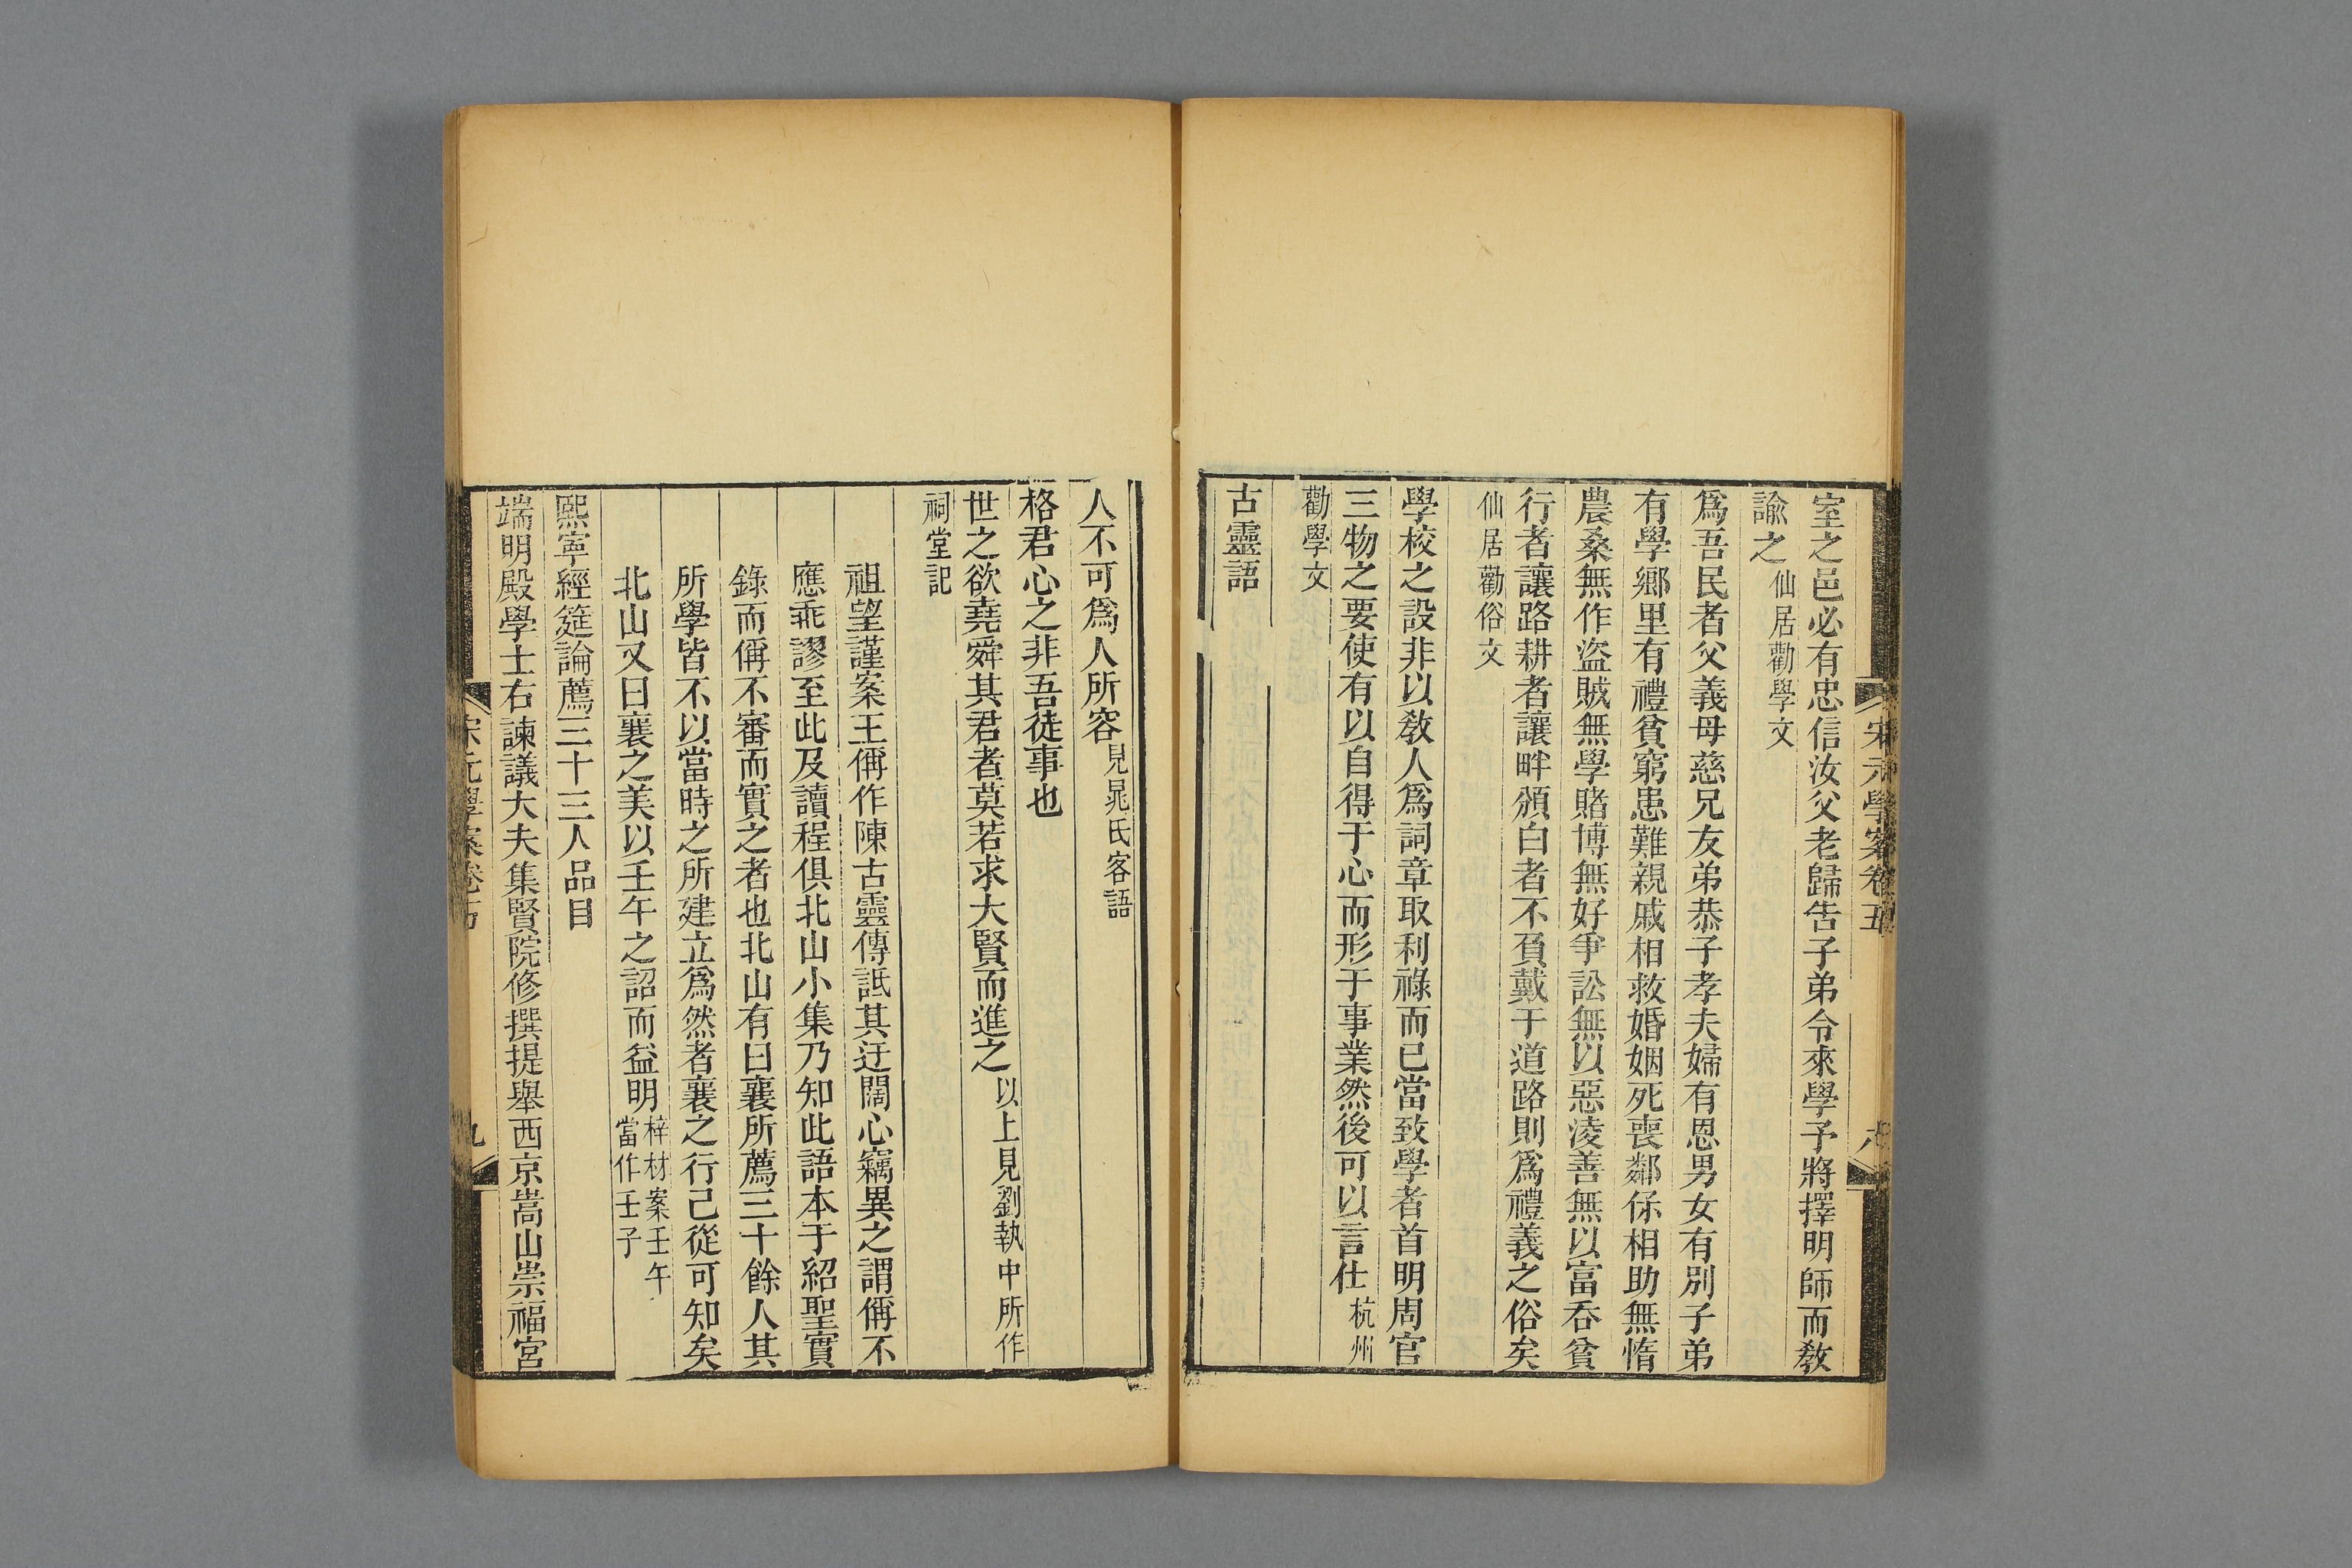 宋元學案卷五
室之邑必有忠信汝父老歸告子弟令來學予將擇明師而敎
諭之仙居勸學文
爲吾民者父義母慈兄友弟恭子孝夫婦有恩男女有別子弟
有學鄕里有禮貧窮患難親戚相救婚姻死喪鄰保相助無惰
農桑無作盜賊無學賭博無好爭訟無以惡淩善無以富吞貧
行者讓路耕者讓畔頒白者不負戴于道路則爲禮義之俗矣
仙居勸俗文
學校之設非以敎人爲詞章取利祿而已當致學者首明周官
三物之要使有以自得于心而形于事業然後可以言仕杭州
勸學文
古靈語
人不可爲人所容見晁氏客語
格君心之非吾徒事也
世之欲堯舜其君者莫若求大賢而進之以上見劉執中所作
祠堂記
祖望謹案王偁作陳古靈傳詆其迂闊心竊異之謂偁不
應乖謬至此及讀程俱北山小集乃知此語本于紹聖實
錄而偁不審而實之者也北山有曰襄所薦三十餘人其
所學皆不以當時之所建立爲然者襄之行己從可知矣
北山又曰襄之美以壬午之詔而益明梓材案壬午
當作壬子
熙寧經筵論薦三十三人品目
端明殿學士右諫議大夫集賢院修撰提舉西京嵩山崇福宮
宋元學案卷五
九